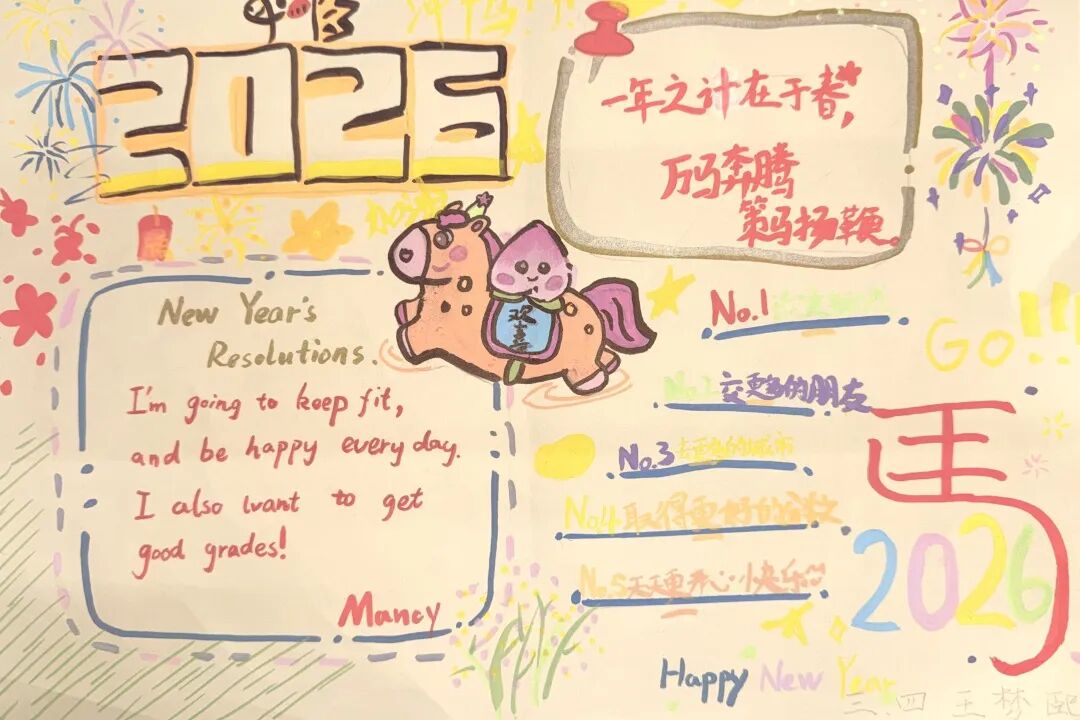 2026
一年之计在于春，
万马奔腾
策马扬鞭。
加油
New Year's
Resolutions.
I'm going to keep fit,
and be happy every day.
I also want to get
good grades!
Mancy
欢
喜
No.1
No.2 交更多的朋友
No.3 去更多的城市
No.4 取得更好的分数
No.5 天天更开心快乐
Go!!!
2026
Happy New Year
二.四 王梦熙